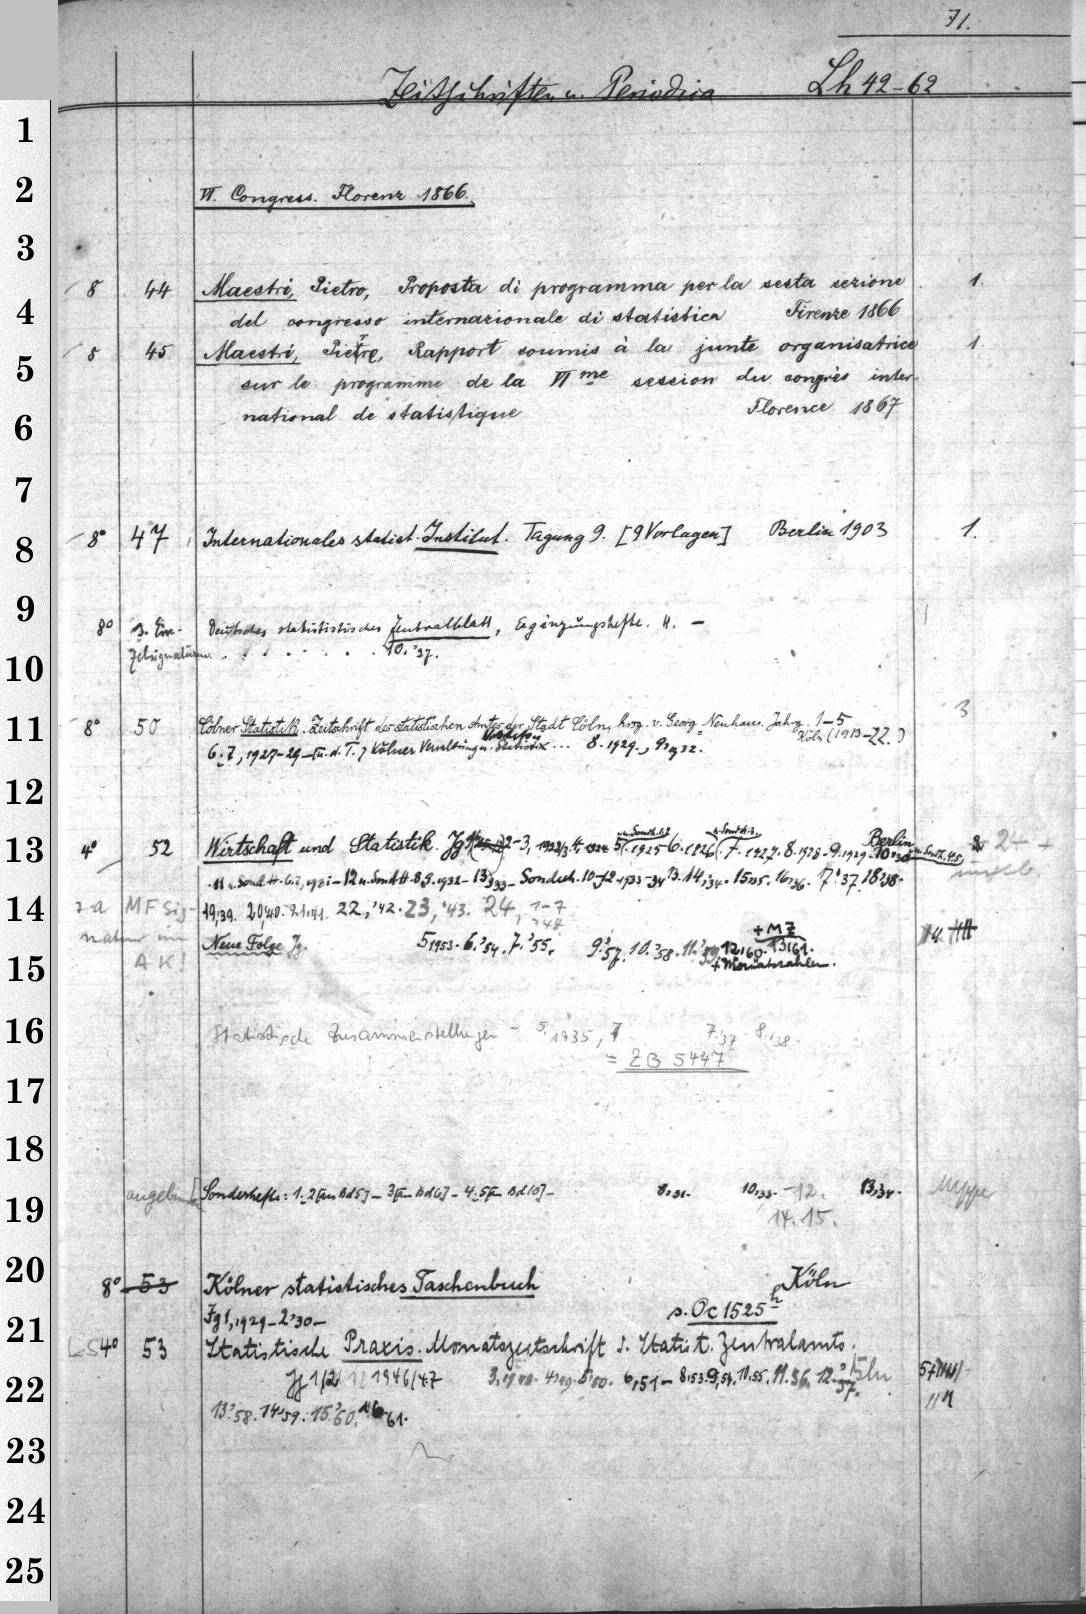 71.
Zeitschriften u. Periodica Lh 42-62
1
2 VI. Congress. Florenz 1866.
3
8 44 Maestri, Pietro, Proposta di programma per la sesta sezione 1.
4 del congresso internazionale di statistica Firenze 1866
8 45 Maestri, Pietre, Rapport soumis à la junte organisatrice 1.
5 sur le programme de la VI me session du congrès inter-
6 national de statistique Florence 1867
7
8 8° 47 Internationales statist. Institut. Tagung 9. [9 Vorlagen] Berlin 1903 1.
9
8° s. Ein- Deutsches statistisches Zentralblatt, Ergänzungshefte. H. —
10 zelsignaturen . . . . . . . 10.'37.
11 8° 50 Cölner Statistik. Zeitschrift des statistischen Amtes der Stadt Cöln, hrsg. v. Georg Neuhaus. Jahrg. 1-5 3
Köln (1913-22.)
6.7, 1927-29 - [u. d. T.] Kölner Verwaltung u. Statistik ... 8.1929.,
12
13 4° 52 Wirtschaft und Statistik. Jg 2-3, 5.1925 6.1926 7.1927. 8.1928-9.1929. Berlin 24 -
12 u. Sond H. 8.9. 1932- 13 1933- 14,'34. 15'35. 16'36. 17'37. 18'38.
14 MF Sig- 19,'39. 20,'40. 21,'41. 22,'42. 23,'43. 24, 1-7
natur im Neue Folge Jg. 5 1953. 6,'54. 7.'55. 9.'57. 10.'58. 11.'59. 12,'60. 13,'61. + MZ
15 AK! + Monatszahlen.
16 Statistische Zusammenstellungen - 5. 1935, 7 7.'37 8.'38.
= ZB 5447
17
18
19 angebunden [Sonderhefte: 1. 2 [an Bd 5] - 3 [an Bd 6] - 4. 5 [an Bd 10] - 8,'31. 10,'33. -12. 13,'34. Mappe
14. 15.
20 8° 53 Kölner statistisches Taschenbuch Köln
Jg 1, 1929 - 2'30 - s. Oc 1525 h
21 LS 4° 53 Statistische Praxis. Monatszeitschrift d. Statist. Zentralamts.
22 Jg 1/2 1946/47 3.1948. 4.'49. 5.'50. 6,'51 - 8.'53. 9,'54. 10,'55. 11.'56. 12.'57. Bln
13.'58. 14'59. 15.'60. 16.'61.
23
24
25